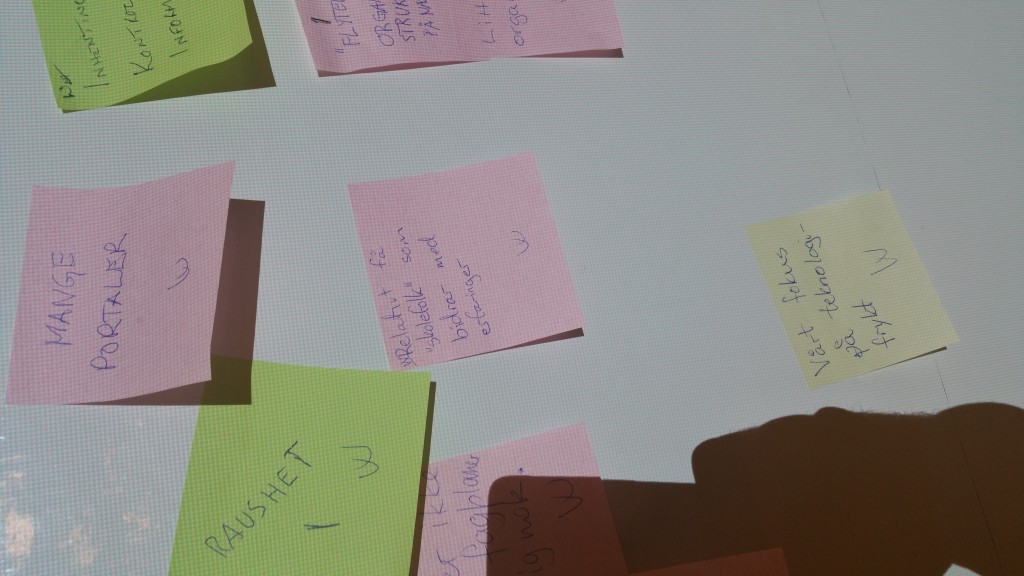 INHENTING
KONTROL
INFORM
"FLYTE
ORGAN
STRUK
PÅ NA
Litt
orga
MANGE
PORTALER
W
"Relativt få
"skolefolk" som
bidrar med
erfaringer
W
Vårt fokus
på teknologi-
frykt
W
RAUSHET
I
W
IKKE
fagplaner
ig nok.
W